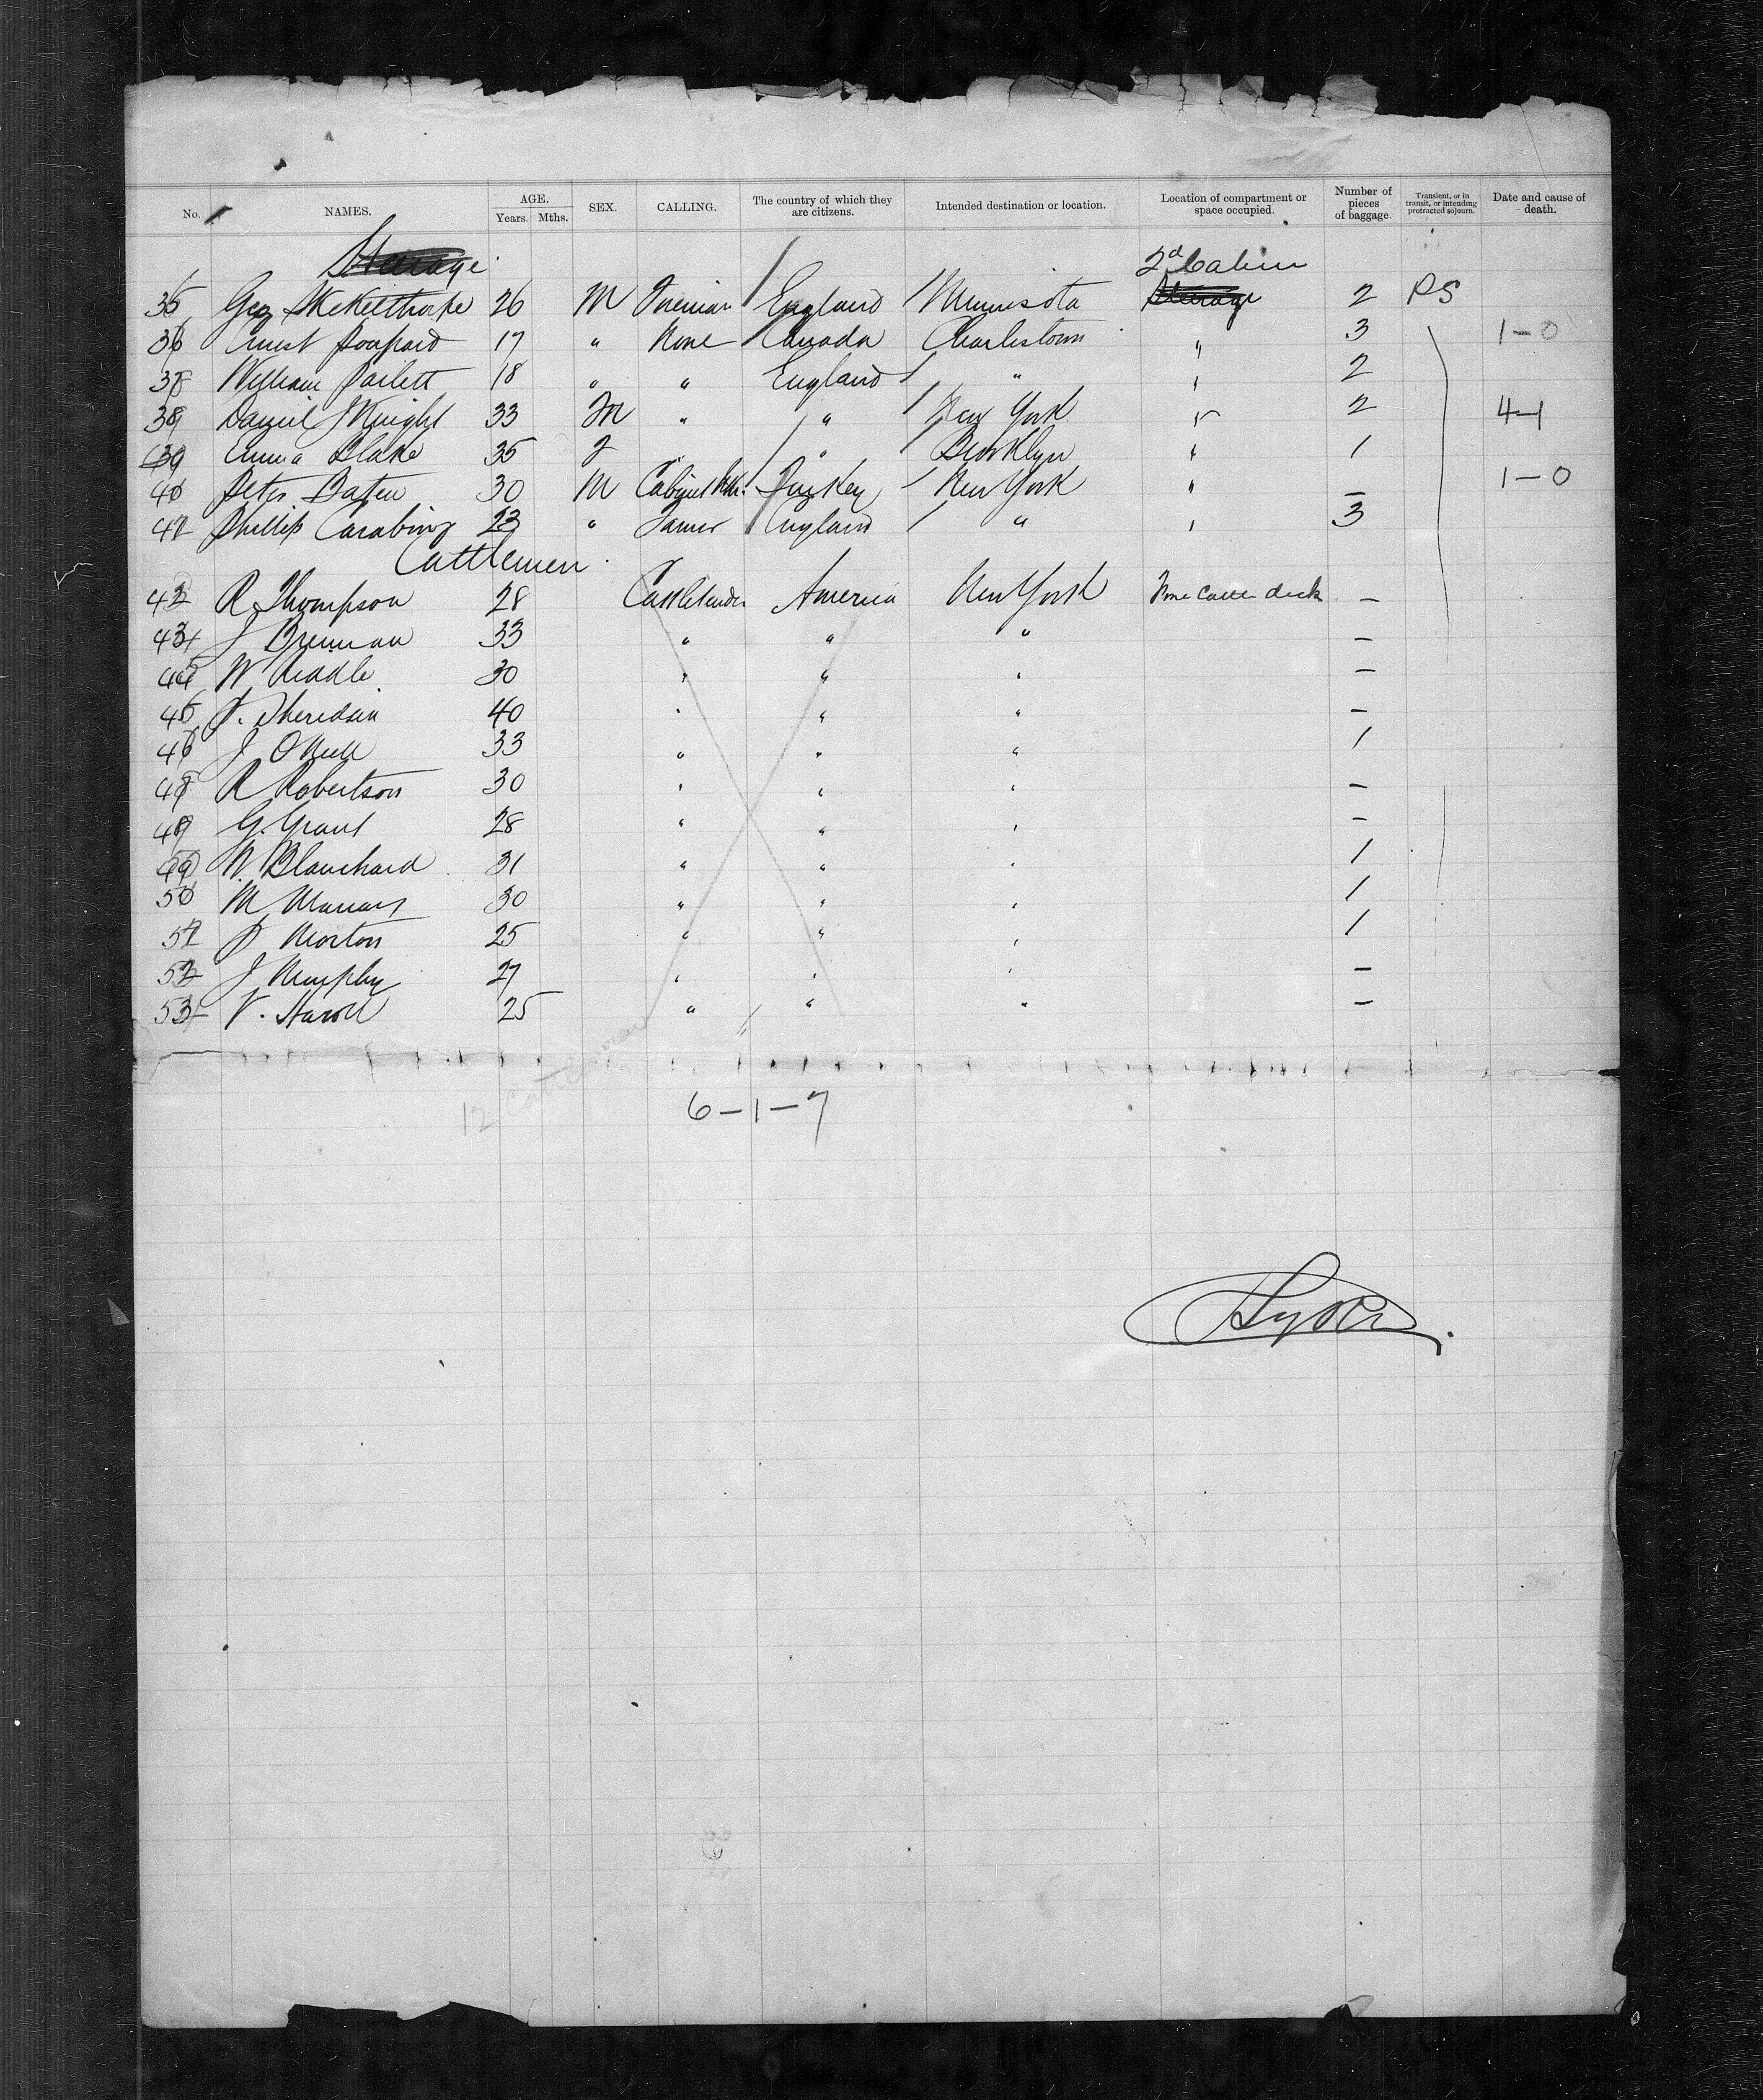 No. NAMES. AGE. Years. Mths. SEX. CALLING. The country of which they are citizens. Intended destination or location. Location of compartment or space occupied. Number of pieces of baggage. Transient, or in transit, or intending protracted sojourn. Date and cause of death.
Steerage 2d Cabin
35 Geo 26 M England Minnesota Steerage 2 PS
36 Ernest 17 " None Canada Charlestown " 3 1-0
37 William 18 " " England " " 2
38 Daniel J Knight 33 M " " New York " 2 4-1
39 Emma Blake 35 F " " Brooklyn " 1
40 Peter 30 M Cabinet Mkr. Turkey New York " - 1-0
41 Phillip 23 " England " " 3
Cattlemen
42 R Thompson 28 America New York deck -
43 J Brennan 33 " " " -
44 W Riddle 30 " " " -
45 Sheridan 40 " " " -
46 J O'Neill 33 " " " 1
R Robertson 30 " " " -
G. Grant 28 " " " -
Blanchard 31 " " " 1
50 M 30 " " " 1
51 Morton 25 " " " 1
52 J Murphy 27 " " " -
53 25 " " " -
12 Cattlemen
6-1-7